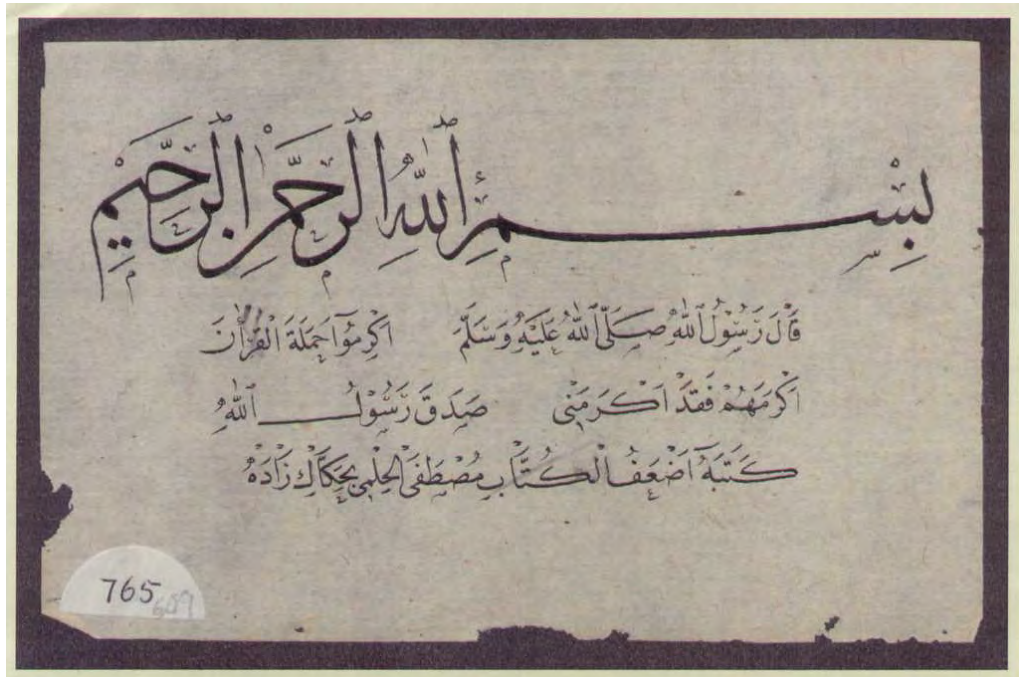 بِسْمِ ٱللّٰهِ ٱلرَّحْمٰنِ ٱلرَّحِيمِ
قَالَ رَسُوْلُ ٱللّٰهِ صَلَّى ٱللّٰهُ عَلَيْهِ وَسَلَّمَ اَكْرِمُوْٓا حَمَلَةَ الْقُرْاٰنَ
اَكْرَمَهُمْ فَقَدْ اَكْرَمَنٖى صَدَقَ رَسُوْلُ ٱللّٰهِ
كَتَبَهُٓ اَضْعَفُ الْكُتَّابِ مُصْطَفَى الْحِلْمِى بِحَكَّاكْ زَادَهْ
765
659